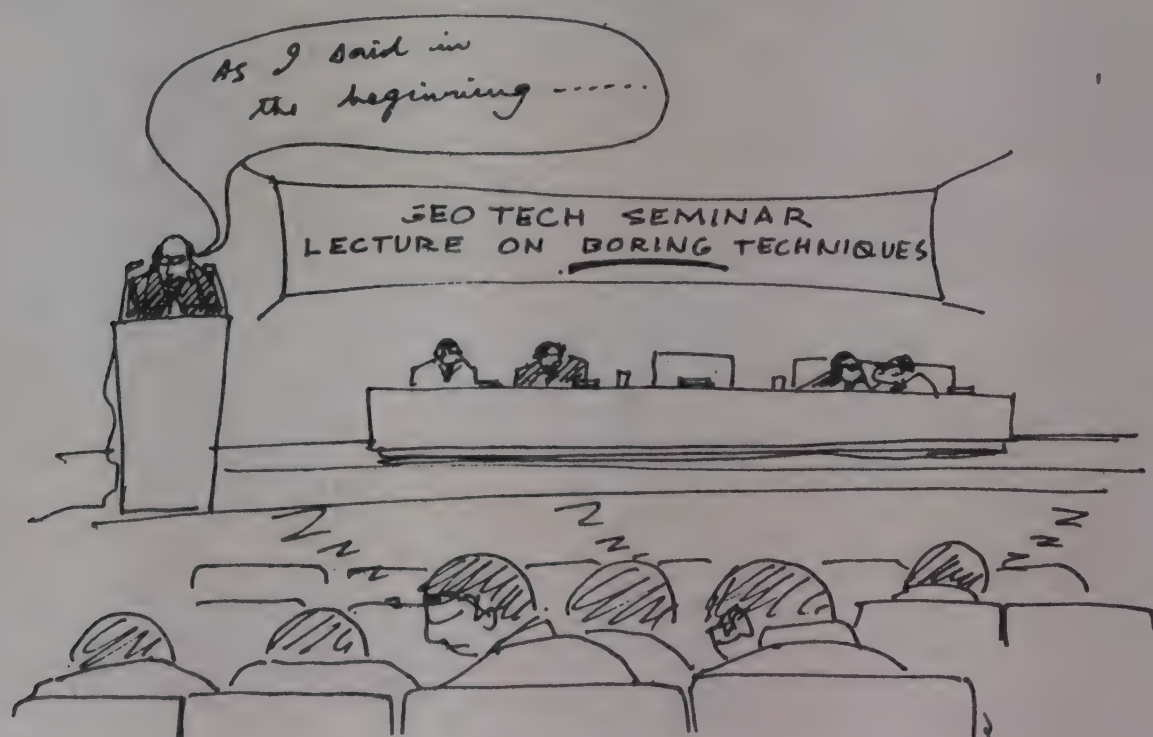 As I said in
the beginning ......
GEO TECH SEMINAR
LECTURE ON BORING TECHNIQUES
Z
z
z
Z
z
z
Z
z
z